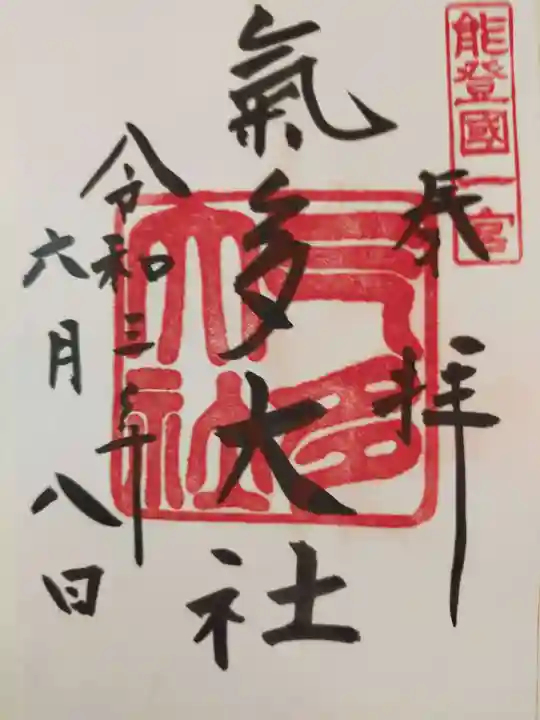 能登國一宮
奉拝
氣多大社
气多大社
令和三年
六月八日